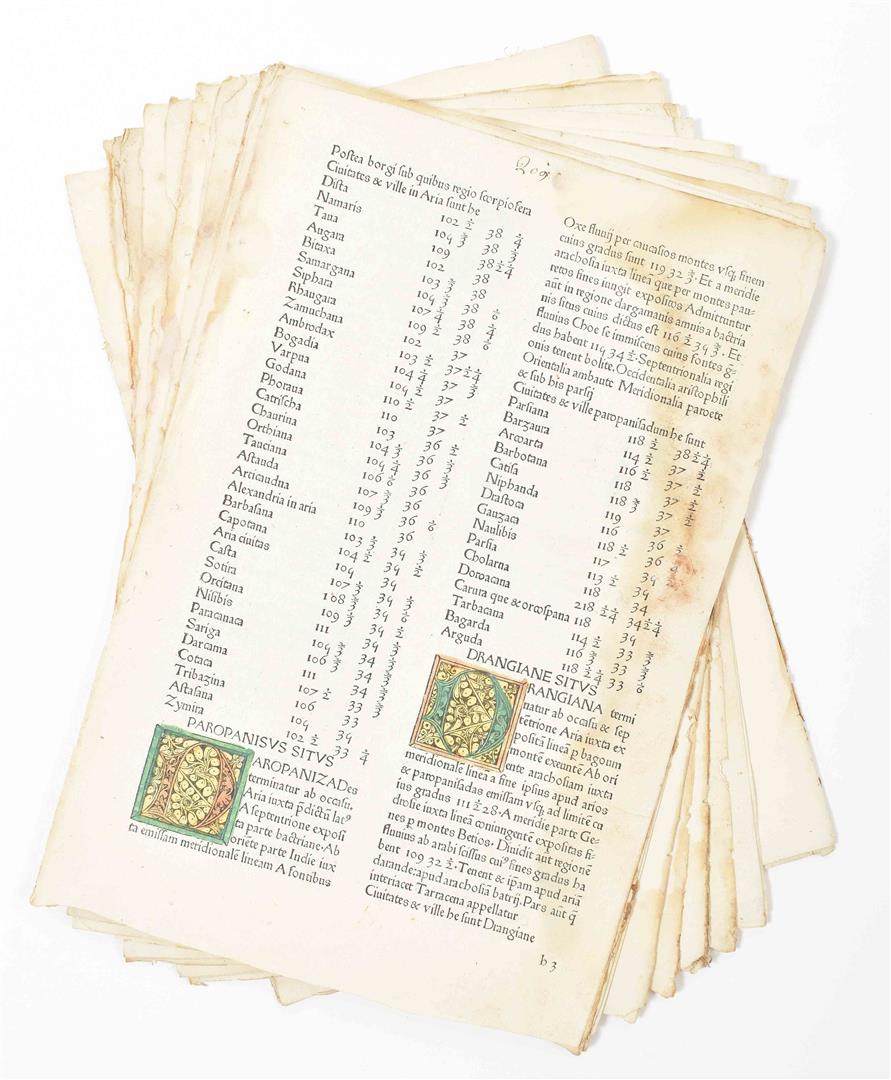 209
Postea borgi sub quibus regio scorpiofera
Ciuitates & ville in Aria sunt he
Dista 102 ½ 38 ¼
Namaris 109 ⅔ 38
Taua 109 38 ½ ¼
Augara 102 38
Bitaxa 103 38
Samargana 104 38
Siphara 107 38
Rhaugara 109 38
Zamuchana 102 37
Ambrodax 103 37
Bogadia 104 37
Varpua 109 37
Godana 110 37
Phoraua 110 37
Catrischa 103 36
Chaurina 104 36
Orthiana 109 36
Tauciana 106 36
Astauda 107 36
Articaudna 109 36
Alexandria in aria 110 36
Barbasana 103 39
Capotana 104 39
Aria ciuitas 109 39
Casta 107 39
Sotira 108 39
Orcitana 109 39
Nisibis 111 39
Paracanaca 109 34
Sariga 106 34
Darcama 111 34
Cotaca 107 ½ 34
Tribazina 106 33
Astasana 109 33
Zymira 102 ½ 33 ¼
PAROPANISVS SITVS
PAROPANIZADES
terminatur ab occasu.
Aria iuxta p̄dictū lat⁹
A septentrione exposi
ta parte bactriane. Ab
oriēte parte Indie iux
ta emissam meridionalē lineam A fontibus
Oxe fluuij per caucasios montes vsq, finem
cuius gradus sunt 119 32 ⅔. Et a meridie
arachosia iuxta lineā que per montes pau⸗
retos fines iungit expositos Admittuntur
aūt in regione dargamanis amnis a bactria
nis situs cuius dictus est 116 ½ 39 ⅔. Et
fluuius Choe se immiscens cuius fontes g⸗
dus habent 119 34 ½. Septentrionalia regi
onis tenent bolite. Occidentalia aristophili
Orientalia ambaute Meridionalia paroete
& sub his parsij
Ciuitates & ville paropanisadum he sunt
Parsiana 118 ½ 38 ½ ¼
Barzaura 114 ½ 37 ½
Arcoarta 116 ½ 37 ½
Barbotana 118 37 ½
Catisa 118 ⅔ 37 ½
Niphanda 119 37 ½
Drastoca 116 37
Gauzaca 118 ½ 36
Naulibis 117 36
Parsia 113 ½ 39
Cholarna 118 39
Dorocana 218 34
Carura que & orcospana 118 34 ½ ¼
Tarbacana 114 ½ 39
Bagarda 116 ⅔ 33 ⅔
Arguda 118 ½ ¼ 33
DRANGIANE SITVS
DRANGIANA termi
natur ab occasu & sep
tētrione Aria iuxta ex
positā lineā p̄ bagoum
montē exeuntē Ab ori
ente arachosiam iuxta
meridionalē linea a fine ipsius apud arios
& paropanisadas emissam vsq, ad limitē cu
ius gradus 111 ½ 28. A meridie parte Ge⸗
drosie iuxta lineā coniungentē expositas fi⸗
nes p̄ montes Betios. Diuidit aūt regionē
fluuius ab arabi scissus cui⁹ fines gradus ha
bent 109 32 ½. Tenent & ip̄am apud ariā
darande: apud arachosiā batrij. Pars aūt q̄
interiacet Tarracena appellatur
Ciuitates & ville he sunt Drangiane
b 3